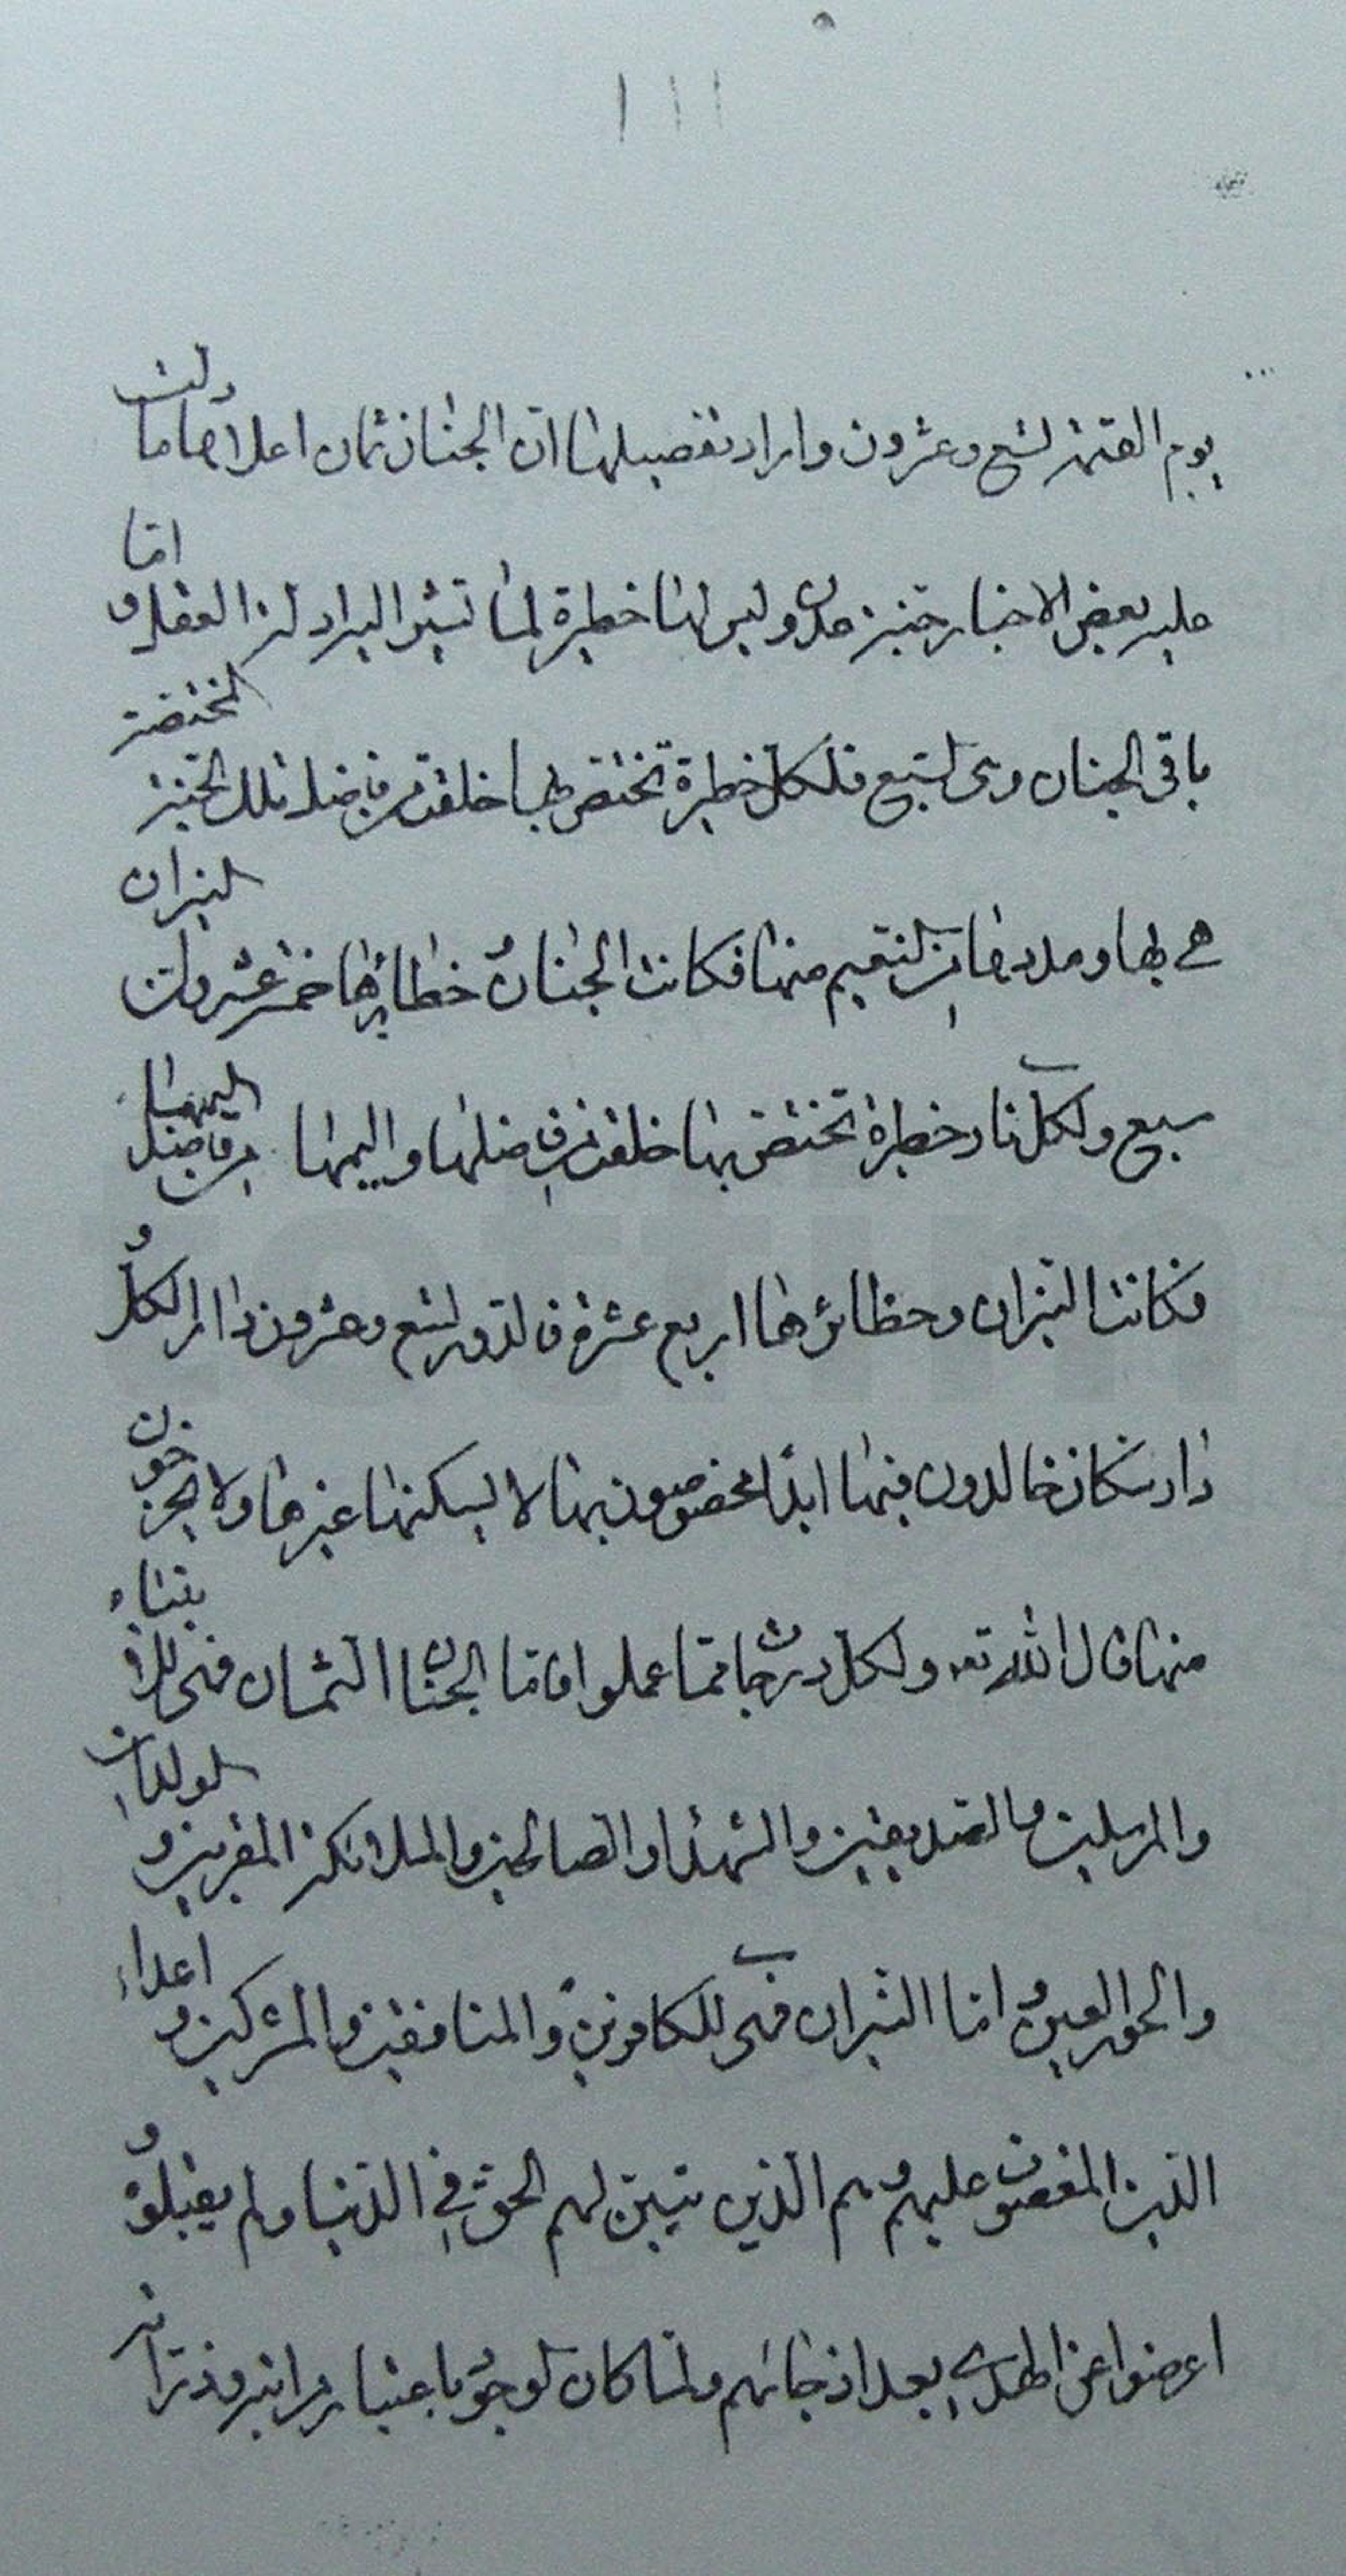 ١١١
يوم القيمة تسع وعشرون دارا وتفصيلها ان الجنان ثمان اعلاها ما دلت
عليه بعض الاخبار جنة عدن وليس لها حظيرة لما تشير اليه ادلة العقل و اما
باقى الجنان وهى السبع فلكل حظيرة تختص بها خلقت من فاضل تلك الجنة المختصة
هى بها ومددها من النعيم منها فكانت الجنان و حظائرها خمس عشرة والنيران
سبع ولكل نار حظيرة تختص بها خلقت من فاضلها واليمها من فاضل اليمها
فكانت النيران وحظائرها اربع عشرة فالدور تسع وعشرون دارا ولكل
دار سكان خالدون فيها ابدا مخصوصون بها لا يسكنها غيرها ولا يخرجون
منها قال الله تعـ ولكل درجات مما عملوا فاما الجنان الثمان فهى للانبياء
والمرسلين والصديقين والشهداء والصالحين والملائكة المقربين و الولدان
والحور العين و اما النيران فهى للكافرين والمنافقين والمشركين و اعداء
الدين المغضوب عليهم وهم الذين تبين لهم الحق فى الدنيا ولم يقبلوه و
اعرضوا عن الهدى بعد اذ جائهم ولما كان الوجود باعتبار مراتبه وذراته